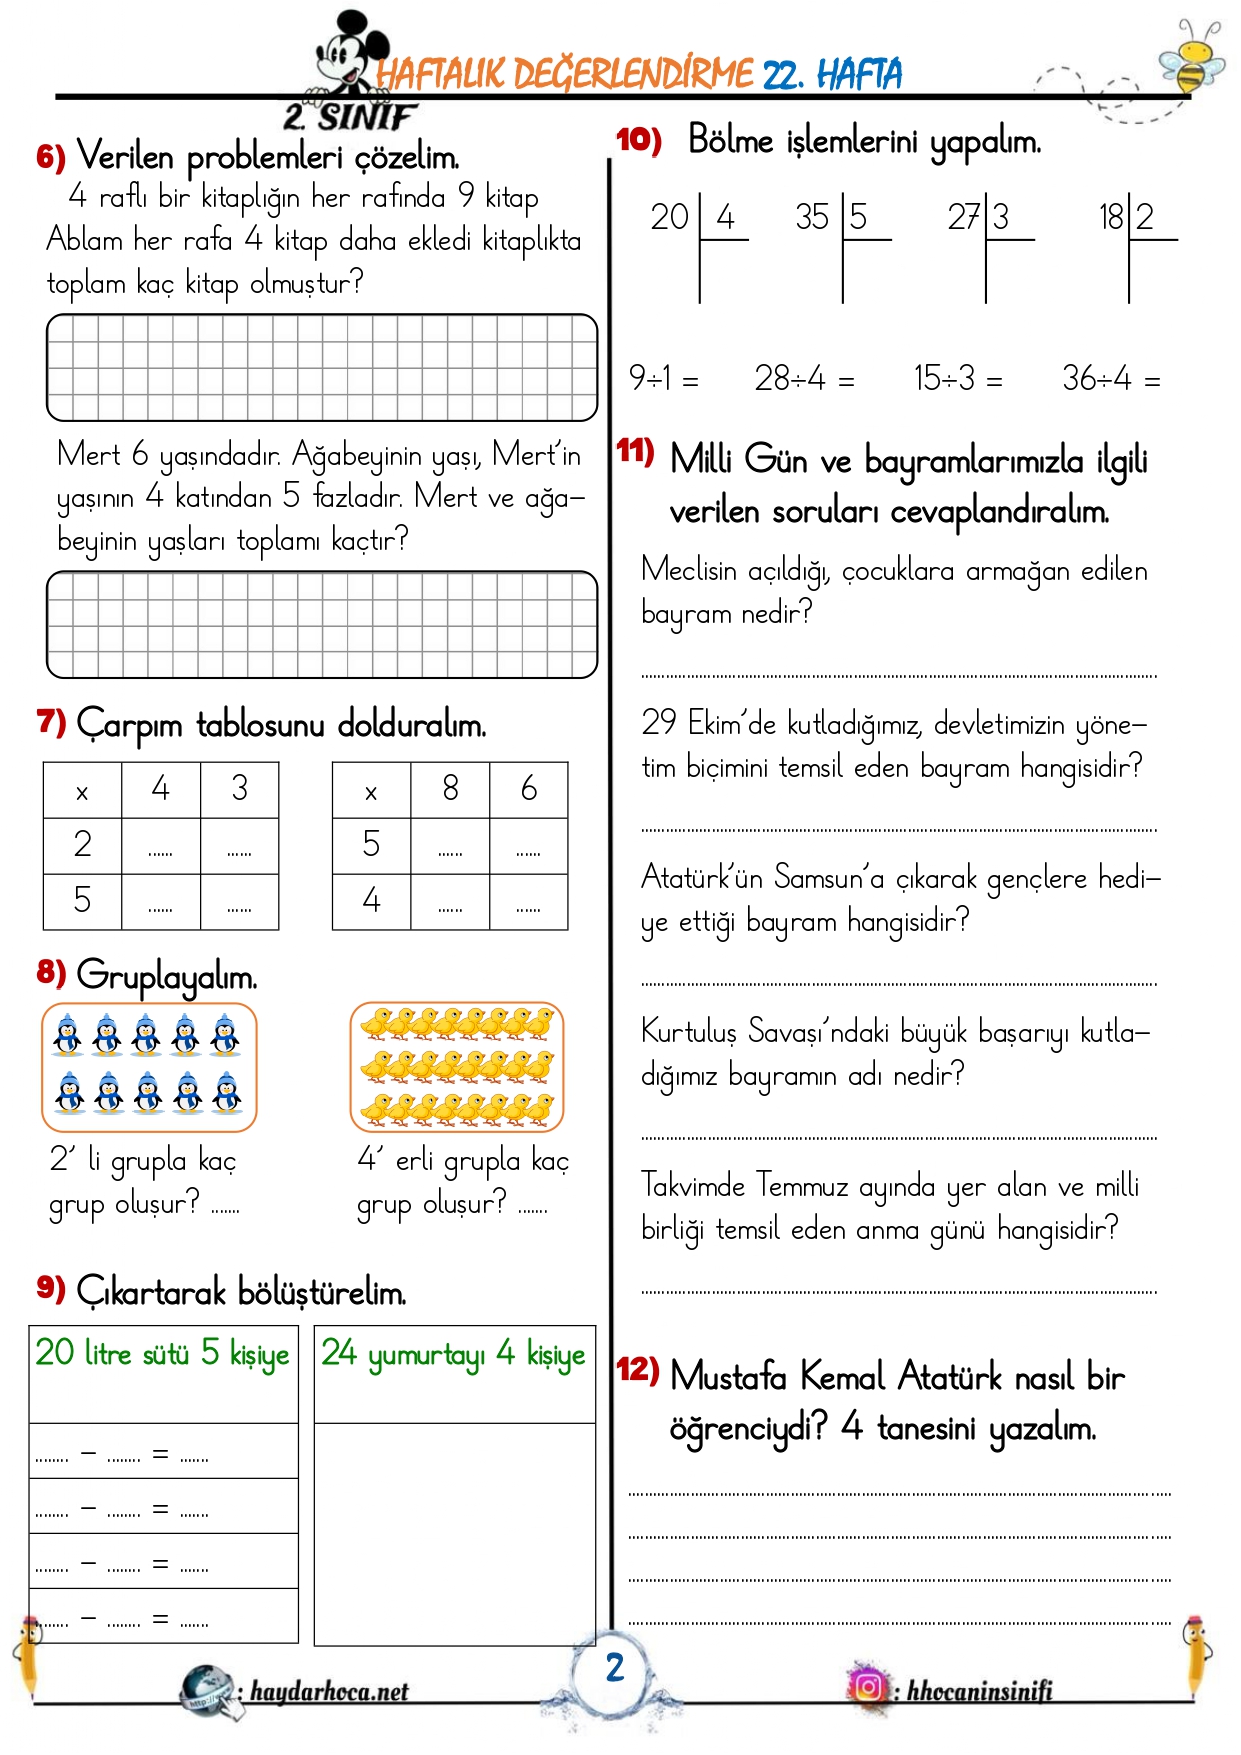 HAFTALIK DEĞERLENDİRME 22. HAFTA
2. SINIF
6) Verilen problemleri çözelim.
4 raflı bir kitaplığın her rafında 9 kitap
Ablam her rafa 4 kitap daha ekledi kitaplıkta
toplam kaç kitap olmuştur?
Mert 6 yaşındadır. Ağabeyinin yaşı, Mert’in
yaşının 4 katından 5 fazladır. Mert ve ağa-
beyinin yaşları toplamı kaçtır?
7) Çarpım tablosunu dolduralım.
x 4 3
2 ...... ......
5 ...... ......
x 8 6
5 ...... ......
4 ...... ......
8) Gruplayalım.
2’ li grupla kaç
grup oluşur? .......
4’ erli grupla kaç
grup oluşur? .......
9) Çıkartarak bölüştürelim.
20 litre sütü 5 kişiye
........ - ........ = .......
........ - ........ = .......
........ - ........ = .......
........ - ........ = .......
24 yumurtayı 4 kişiye
10) Bölme işlemlerini yapalım.
20 4 35 5 27 3 18 2
9÷1 = 28÷4 = 15÷3 = 36÷4 =
11) Milli Gün ve bayramlarımızla ilgili
verilen soruları cevaplandıralım.
Meclisin açıldığı, çocuklara armağan edilen
bayram nedir?
29 Ekim’de kutladığımız, devletimizin yöne-
tim biçimini temsil eden bayram hangisidir?
Atatürk’ün Samsun’a çıkarak gençlere hedi-
ye ettiği bayram hangisidir?
Kurtuluş Savaşı’ndaki büyük başarıyı kutla-
dığımız bayramın adı nedir?
Takvimde Temmuz ayında yer alan ve milli
birliği temsil eden anma günü hangisidir?
12) Mustafa Kemal Atatürk nasıl bir
öğrenciydi? 4 tanesini yazalım.
http://
: haydarhoca.net
2
: hhocaninsinifi